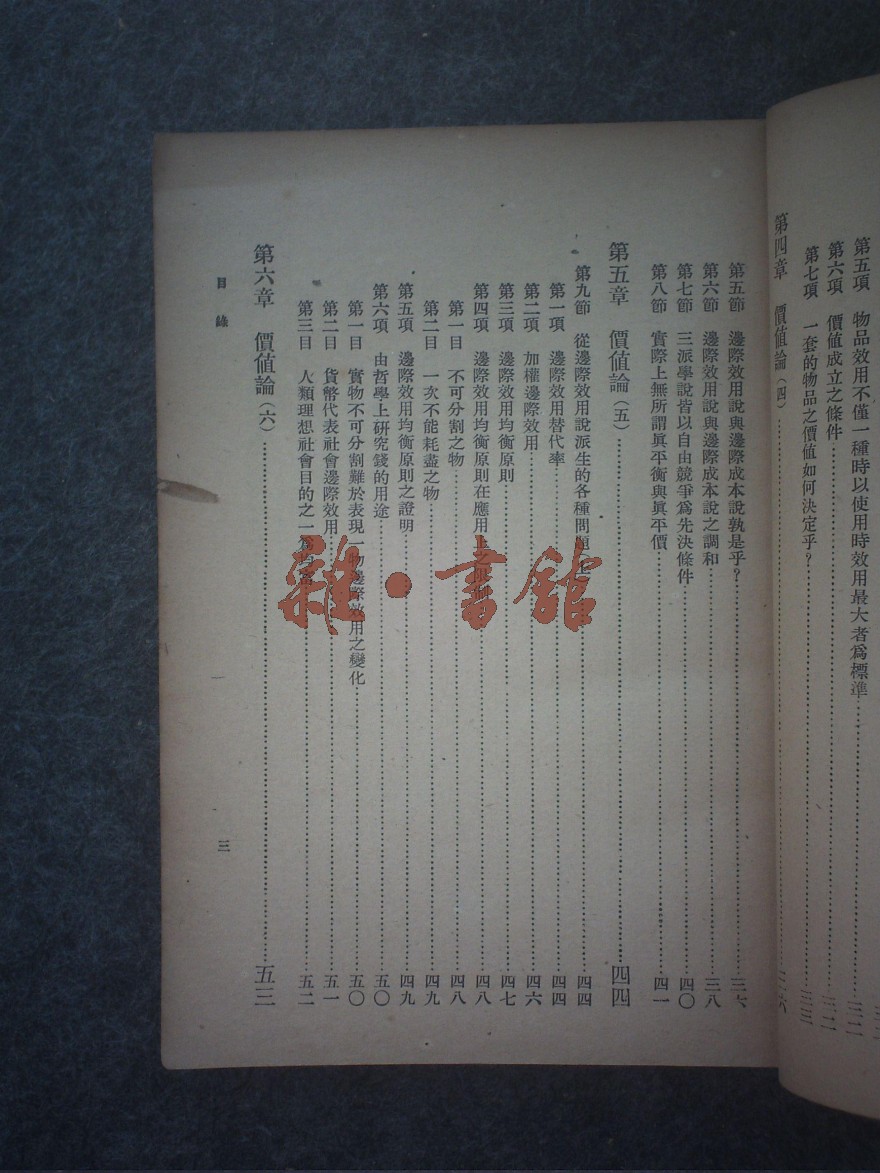 第五項　物品效用不僅一種時以使用時效用最大者爲標準
第六項　價値成立之條件
第七項　一套的物品之價値如何決定乎？
第四章　價値論（四）
第五節　邊際效用說與邊際成本說孰是乎？
第六節　邊際效用說與邊際成本說之調和……三八
第七節　三派學說皆以自由競爭爲先決條件……四〇
第八節　實際上無所謂眞平衡與眞平價……四一
第五章　價値論（五）……四四
第九節　從邊際效用說派生的各種問題……四四
第一項　邊際效用替代率……四四
第二項　加權邊際效用……四六
第三項　邊際效用均衡原則……四七
第四項　邊際效用均衡原則在應用上之限制……四八
第一目　不可分割之物……四八
第二目　一次不能耗盡之物……四九
第五項　邊際效用均衡原則之證明……四九
第六項　由哲學上硏究錢的用途……五〇
第一目　實物不可分割難於表現一物邊際效用之變化……五〇
第二目　貨幣代表社會邊際效用……五一
第三目　人類理想社會目的之一爲……五二
第六章　價値論（六）……五三
目錄
三
雜·書館